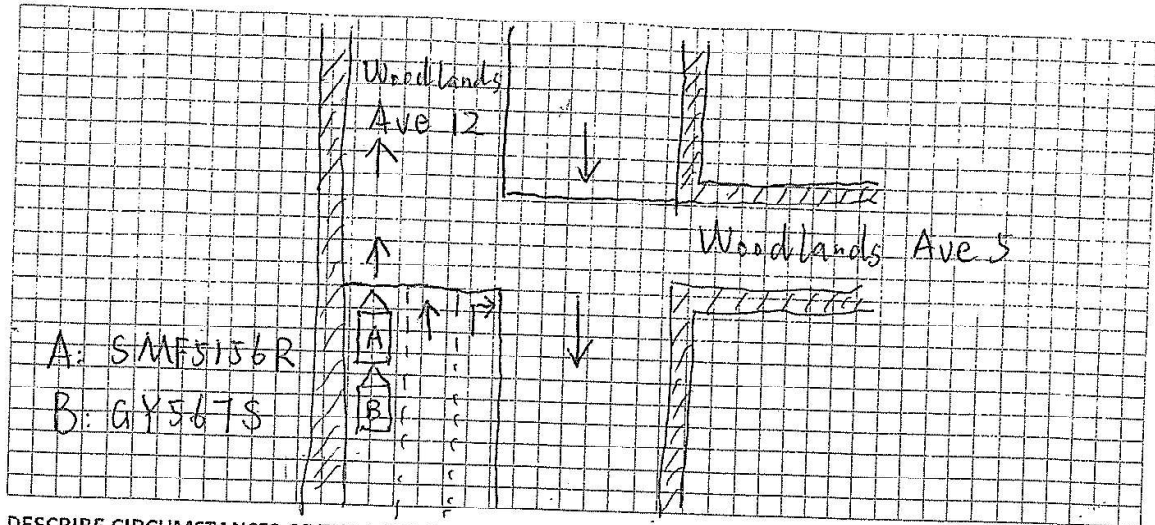 Woodlands
Ave 12
Woodlands Ave 5
A
B
A: SMF5156R
B: GY567S
DESCRIBE CIRCUMSTANCES